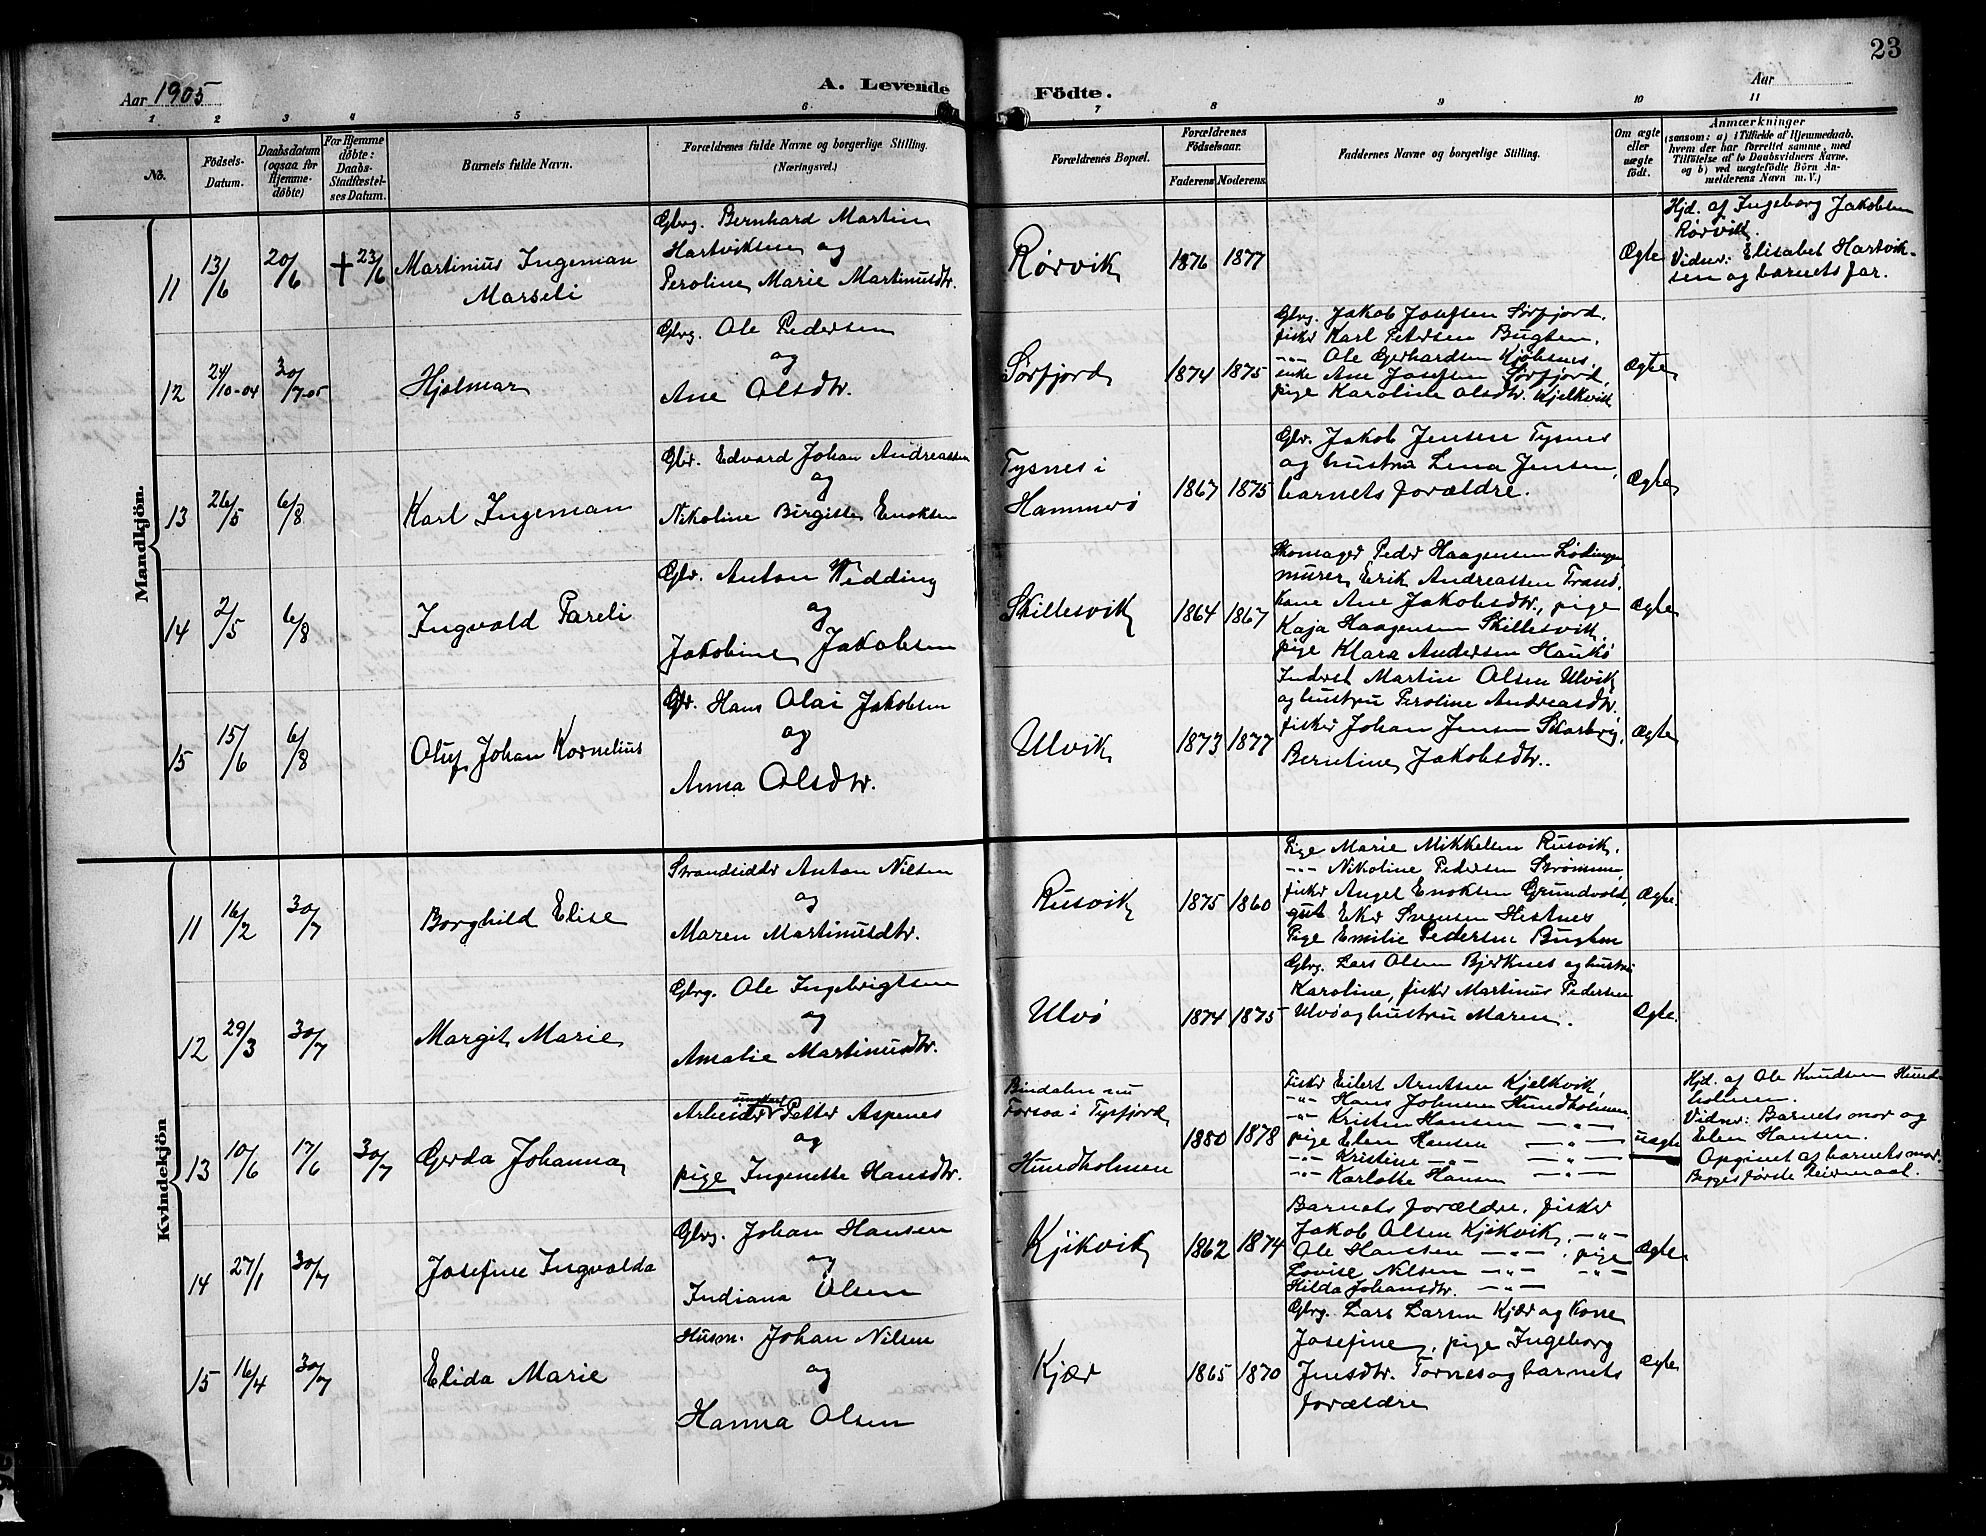 23
Aar 1905
A. Levende
Födte.
Aar
1 2 3 4 5 6 7 8 9 10 11
No.
Födsels-
Datum.
Daabsdatum
(ogsaa for
Hjemme-
döbte)
For Hjemme
döbte:
Daabs-
Stadfæstel-
ses Datum.
Barnets fulde Navn.
Forældrenes fulde Navne og borgerlige Stilling.
(Næringsvei.)
Forældrenes Bopæl.
Forældrenes
Födselsaar.
Faderens Moderens
Faddernes Navne og borgerlige Stilling.
Om ægte
eller
uægte
födt.
Anmærkninger
(saasom: a) i Tilfælde af Hjemmedaab,
hvem der har forrettet samme, med
Tilföielse af to Daabsvidners Navne,
og b) ved uægtefödte Börn An-
melderens Navn m. V.)
Mandkjön.
11 13/6 20/6 + 23/6 Martinus Ingeman
Marseli
Gbrg. Bernhard Martin
Hartviksen og
Peroline Marie Martinusdtr.
Rørvik 1876 1877 Ægte
Hjd. af Ingeborg Jakobsen
Rørvik.
Vidner: Elisabet Hartvik-
sen og barnets far.
12 24/10-04 30/7-05 Hjalmar
Gbrg. Ole Pedersen
og
Ane Olsdtr.
Sørfjord 1874 1875
Gbrg. Jakob Josefsen Sørfjord.
fisker Karl Petersen Bugten.
-"- Ole Gerhardsen Kjøbsnes,
enke Ane Josefsen Sørfjord,
pige Karoline Olsdtr. Kjelkvik
Ægte
13 26/5 6/8 Karl Ingeman
Gbr. Edvard Johan Andreassen
og
Nikoline Birgitte Enoksen
Tysnes i
Hammerø
1867 1875
Gbr. Jakob Jensen Tysnes
og hustru Lena Jensen,
barnets forældre.
Ægte
14 2/5 6/8 Ingvald Pareli
Gbr. Anton Widding
og
Jakobine Jakobsen
Skillesvik 1864 1867
Skomager Peder Haagensen Lødingen
murer Erik Andreassen Tranø.
Kone Ane Jakobsdtr., pige
Kaja Haagensen Skillesvik,
pige Klara Andersen Haukø
Ægte
15 15/6 6/8 Oluf Johan Kornelius
Gbr. Hans Olai Jakobsen
og
Anna Olsdtr.
Ulvik 1873 1877
Inderst Martin Olsen Ulvik
og hustru Peroline Andreasdtr.
fisker Johan Jensen Skarberg,
Berntine Jakobsdtr.
Ægte
Kvindekjön
11 16/2 30/7 Borghild Elise
Strandsidder Anton Nilsen
og
Maren Martinusdtr.
Rusvik 1875 1860
Pige Marie Mikkelsen Rusvik.
-"- Nikoline Pedersen Strømmen,
fisker Angel Enoksen Grundvold,
gut Eker Sørensen Hestnes
Pige Emilie Pedersen Bugten
Ægte.
12 29/3 30/7 Margit Marie
Gbrg. Ole Ingebrigtsen
og
Amalie Martinusdtr.
Ulvø 1874 1875
Gbrg. Lars Olsen Bjerknes og hustru
Karoline, fisker Martinus Pedersen
Ulvø og hustru Maren.
Ægte.
13 10/6 17/6 30/7 Gerda Johanna
ungkarl
Arbeider Petter Aspenes
og
pige Ingenette Hansdtr.
Bindalen nu
Forsaa i Tysfjord
Hundholmen
1880 1878
Fisker Eilert Arntsen Kjelkvik,
-"- Hans Johnsen Hundholmen
-"- Kristen Hansen -"-
pige Elen Hansen -"-
-"- Kristine -"- -"-
-"- Karlotte Hansen -"-
uægte
Hjd. af Ole Knudsen Hund-
holmen.
Vidner: Barnets mor og
Elen Hansen.
Opgivet af barnets mor.
Begges første leiermaal.
14 27/1 30/7 Josefine Ingvalda
Gbrg. Johan Hansen
og
Indiana Olsen
Kjikvik 1862 1874
Barnets forældre, fisker
Jakob Olsen Kjikvik, -"-
Ole Hansen -"-, pige
Lovise Nilsen -"- -"-
Hilda Johansdtr. -"-
Ægte
15 16/4 30/7 Elida Marie
Husm. Johan Nilsen
og
Hanna Olsen
Kjær 1865 1870
Gbrg. Lars Larsen Kjær og Kone
Josefine, pige Ingeborg
Jensdtr. Tornes og barnets
forældre
Ægte